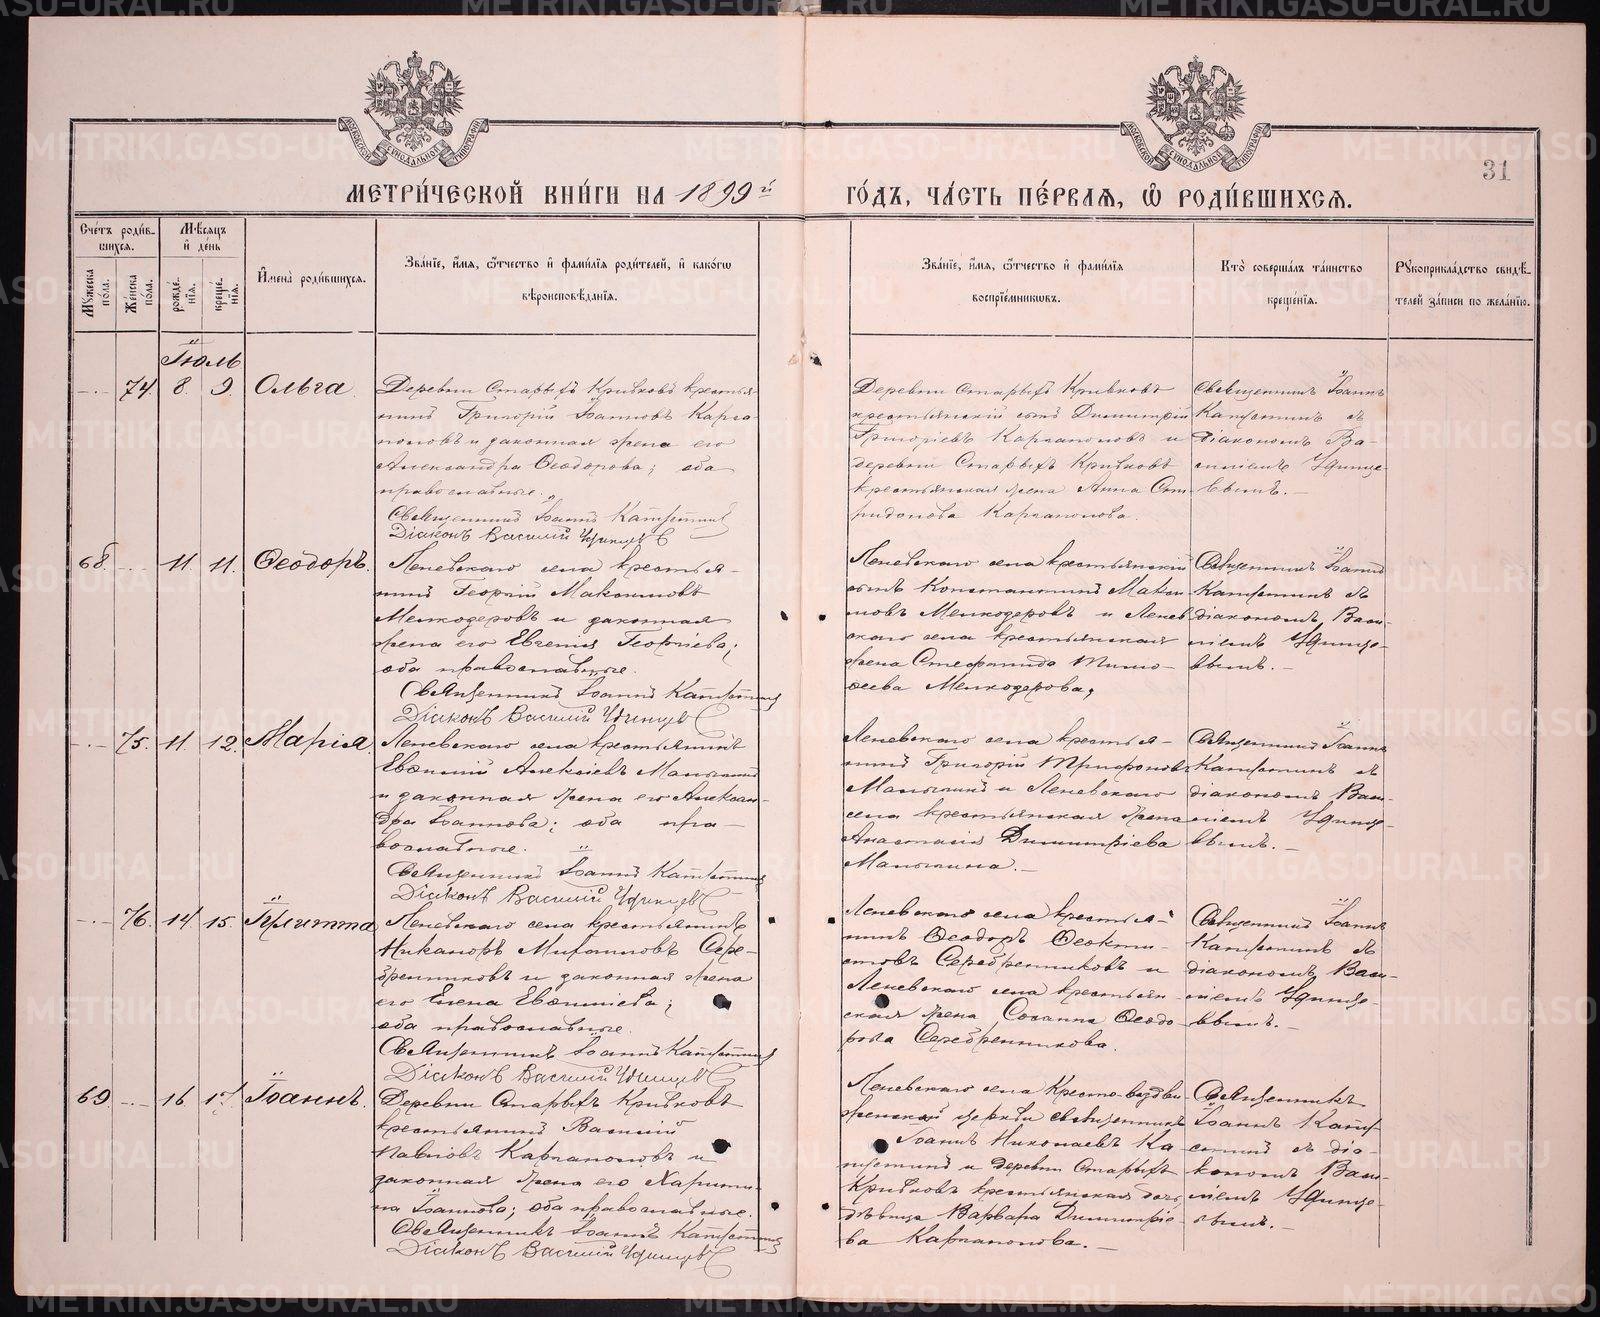 МЕТРИ́ЧЕСКОЙ КНИ́ГИ НА 1899 й
ГО́ДЪ, ЧА́СТЬ ПЕ́РВАЯ, Ѡ РОДИ́ВШИХСЯ.
31
Сче́тъ роди́в-
шихся.
Му́жеска по́ла.
Же́нска по́ла.
Мѣ́сяцъ
и де́нь
рожде́-
нія.
креще́-
нія.
Имена̀ роди́вшихся.
Зва́ніе, и́мя, ѻ́тчество и фами́лія роди́телей, и како́гѡ
вѣроисповѣ́данія.
Зва́ніе, и́мя, ѻ́тчество и фами́лія
воспріе́мниковъ.
Кто̀ соверша́лъ та́инство
креще́нія.
Рукоприкла́дство свидѣ́-
телей за́писи по жела́нію.
Іюль
74. 8. 9. Ольга.
Деревни Старыхъ Кривковъ крестья-
нинъ Григорій Іоанновъ Карга-
половъ и законная жена его
Александра Ѳеодорова; оба
православные.
Священникъ Іоаннъ
Діаконъ Василій Удинцевъ
Деревни Старыхъ Кривковъ
крестьянскій сынъ Димитрій
Григоріевъ Каргаполовъ и
деревни Старыхъ Кривковъ
крестьянская жена Анна Спи-
ридонова Каргаполова.
Священникъ Іоаннъ
съ
діакономъ Ва-
силіемъ Удинце-
вымъ.-
68. 11. 11. Ѳеодоръ.
Леневскаго села крестья-
нинъ Георгій Максимовъ
Мелкозеровъ и законная
жена его Евгенія Георгіева;
оба православные.
Священникъ Іоаннъ
Діаконъ Василій Удинцевъ
Леневскаго села крестьянскій
сынъ Константинъ Макси-
мовъ Мелкозеровъ и Ленев-
скаго села крестьянская
жена Стефанида Тимо-
ѳеева Мелкозерова;
Священникъ Іоаннъ
съ
діакономъ Васи-
ліемъ Удинце-
вымъ.-
75. 11. 12. Марія.
Леневскаго села крестьянинъ
Евѳимій Алексіевъ Малыгинъ
и законная жена его Алексан-
дра Іоаннова; оба пра-
вославные.
Священникъ Іоаннъ
Діаконъ Василій Удинцевъ
Леневскаго села крестья-
нинъ Григорій Трифоновъ
Малыгинъ и Леневскаго
села крестьянская жена
Анастасія Димитріева
Малыгина.-
Священникъ Іоаннъ
съ
діакономъ Васи-
ліемъ Удинце-
вымъ.-
76. 14 15. Іулитта
Леневскаго села крестьянинъ
Никаноръ Михаиловъ Сере-
бренниковъ и законная жена
его Елена Евѳиміева;
оба православные.
Священникъ Іоаннъ
Діаконъ Василій Удинцевъ
Леневскаго села крестья-
нинъ Ѳеодоръ Ѳеокти-
стовъ Серебренниковъ и
Леневскаго села крестьян-
ская жена Сосанна Ѳеодо-
рова Серебренникова.
Священникъ Іоаннъ
съ
діакономъ Васи-
ліемъ Удинце-
вымъ.-
69. 16 17. Іоаннъ.
Деревни Старыхъ Кривковъ
крестьянинъ Василій
Павловъ Каргаполовъ и
законная жена его Харити-
на Іоаннова; оба православные.
Священникъ Іоаннъ
Діаконъ Василій Удинцевъ
Леневскаго села Кресто-воздви-
женской церкви священникъ
Іоаннъ Николаевъ
и деревни Старыхъ
Кривковъ крестьянская дочь
дѣвица Варвара Димитріе-
ва Каргаполова.-
Священникъ
Іоаннъ
съ діа-
кономъ Васи-
ліемъ Удинце-
вымъ.-
METRIKI.GASO-URAL.RU